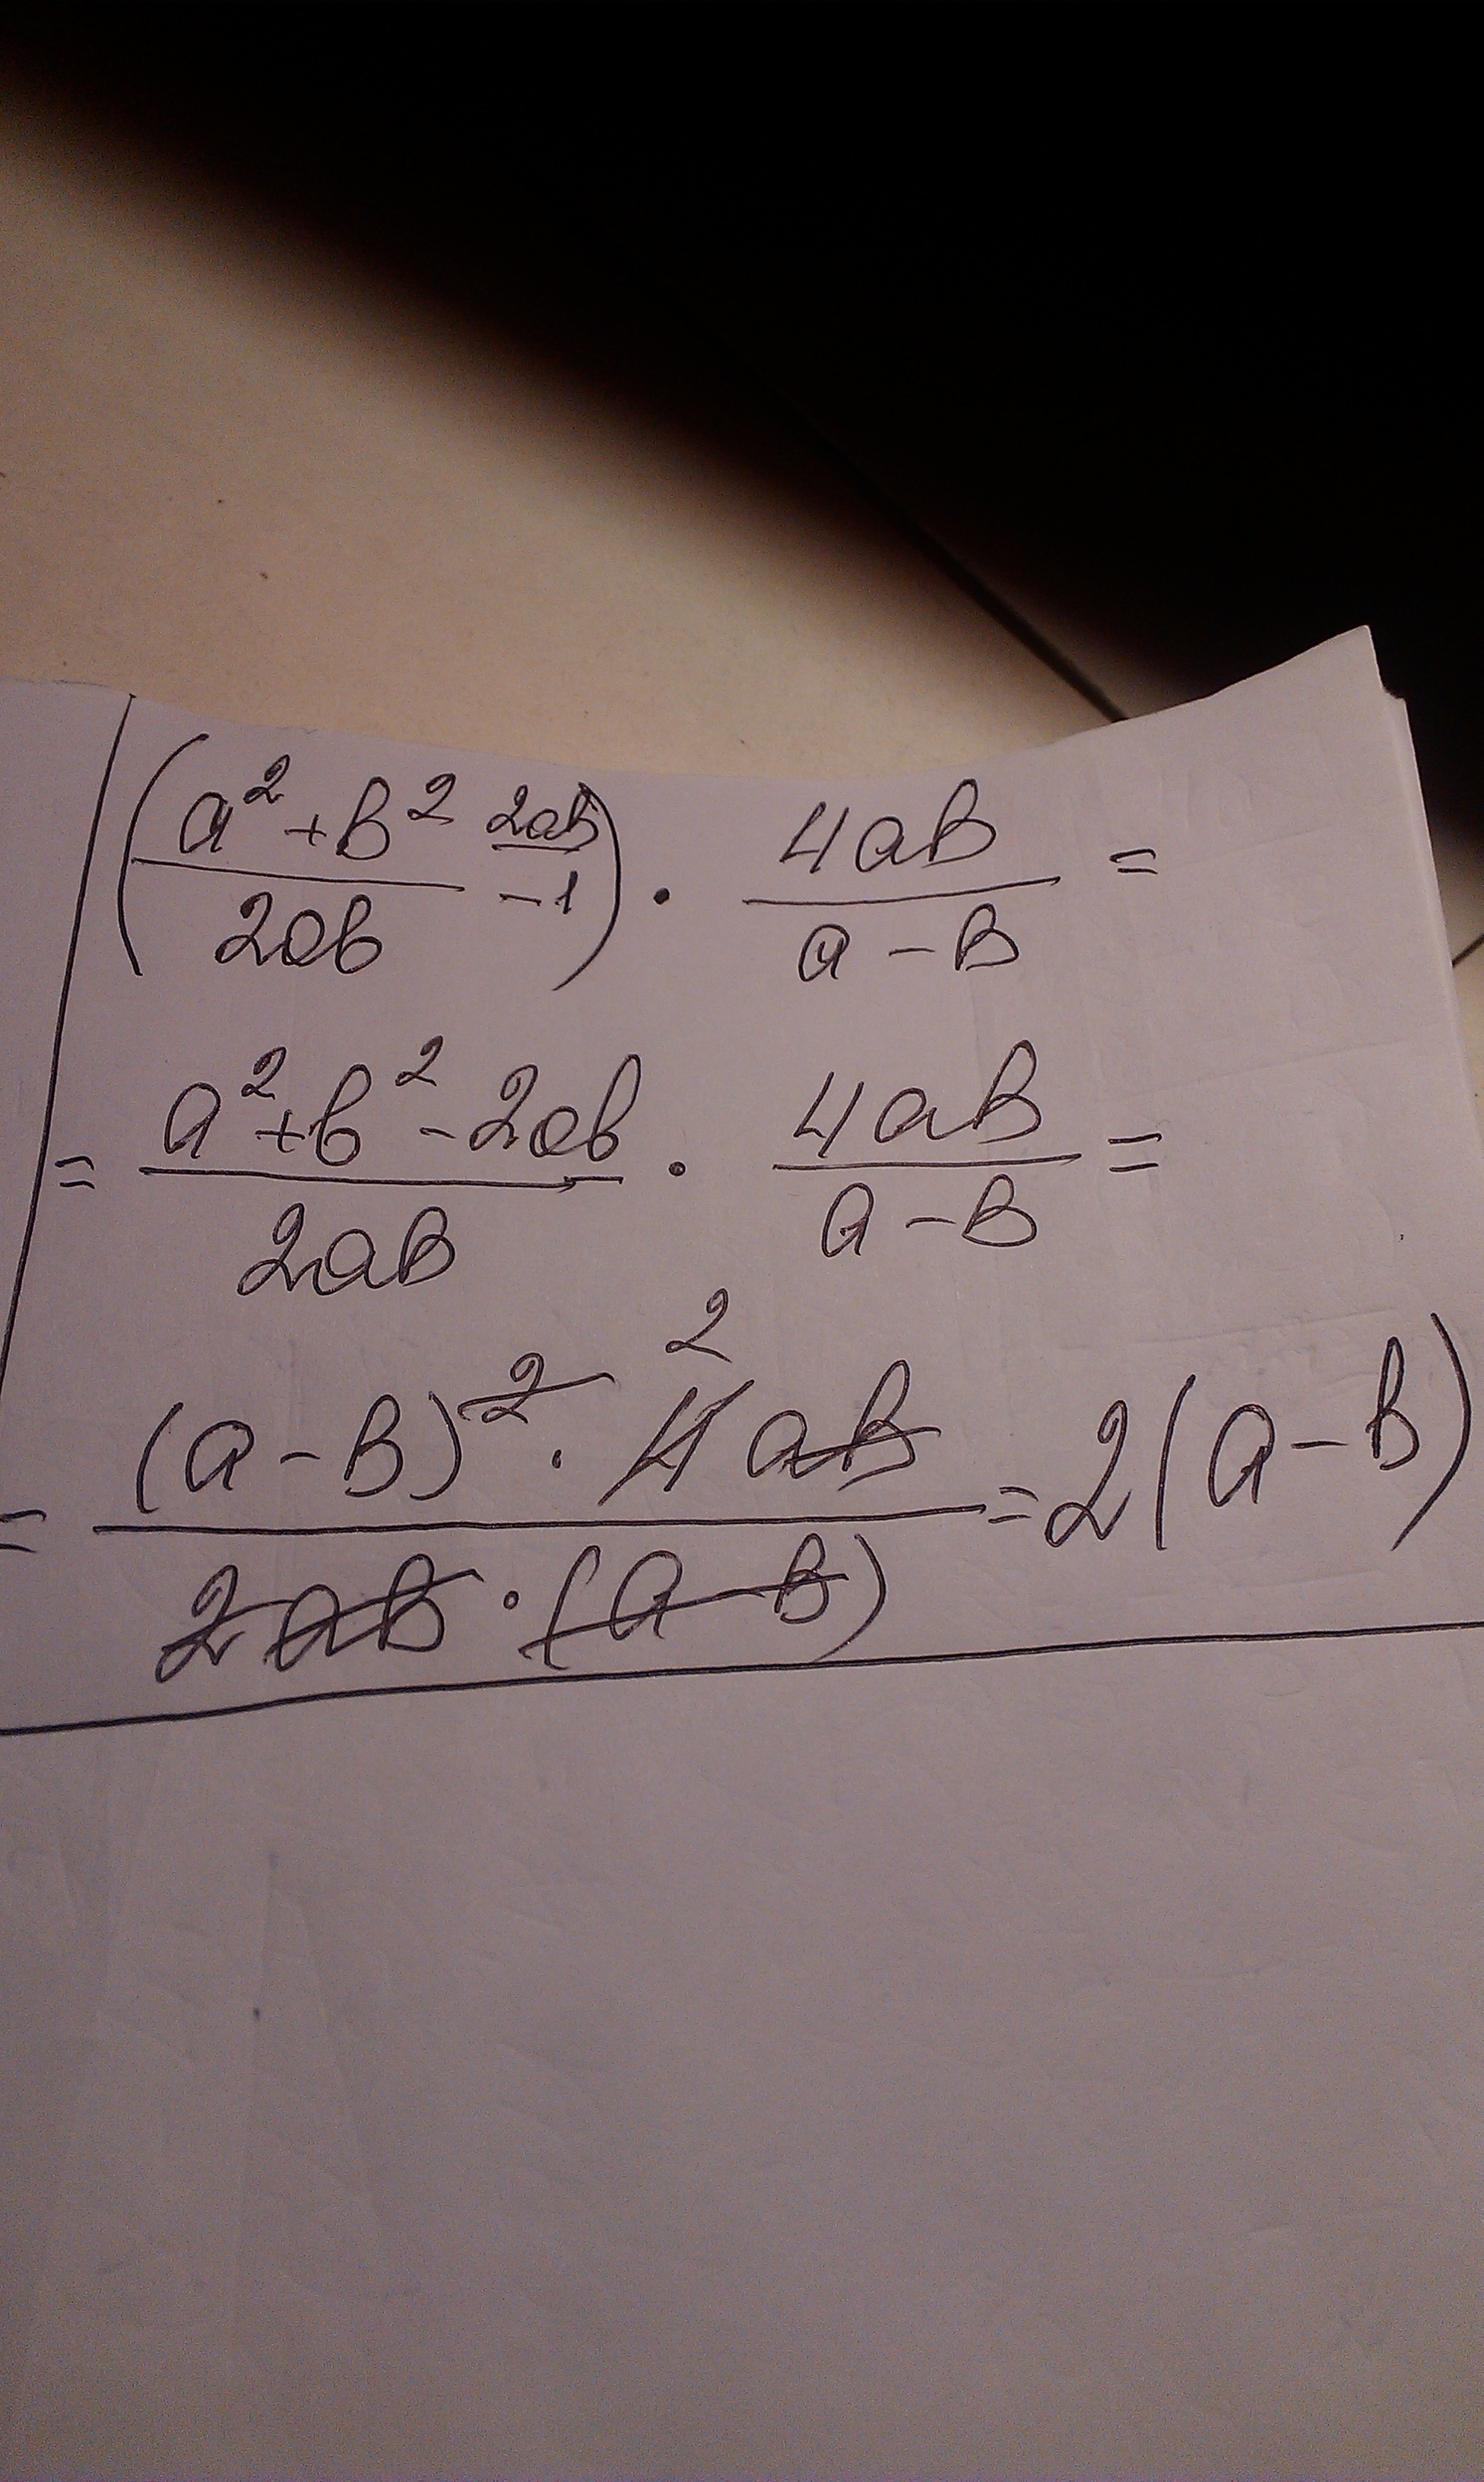 (a²+b²/2ab -1 2ab) · 4ab/a-b =
= a²+b²-2ab/2ab · 4ab/a-b =
= (a-b)² · 4ab 2/2ab·(a-b) = 2(a-b)